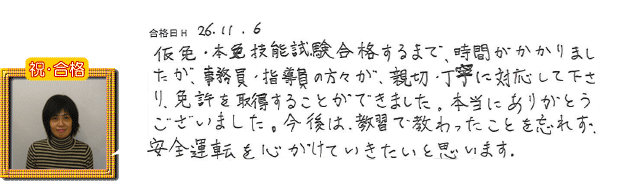 合格日 H 26.11.6
祝・合格
仮免・本免技能試験合格するまで、時間がかかりまし
たが、事務員・指導員の方々が、親切・丁寧に対応して下さ
り、免許を取得することができました。本当にありがとう
ございました。今後は、教習で教わったことを忘れず、
安全運転を心がけていきたいと思います。